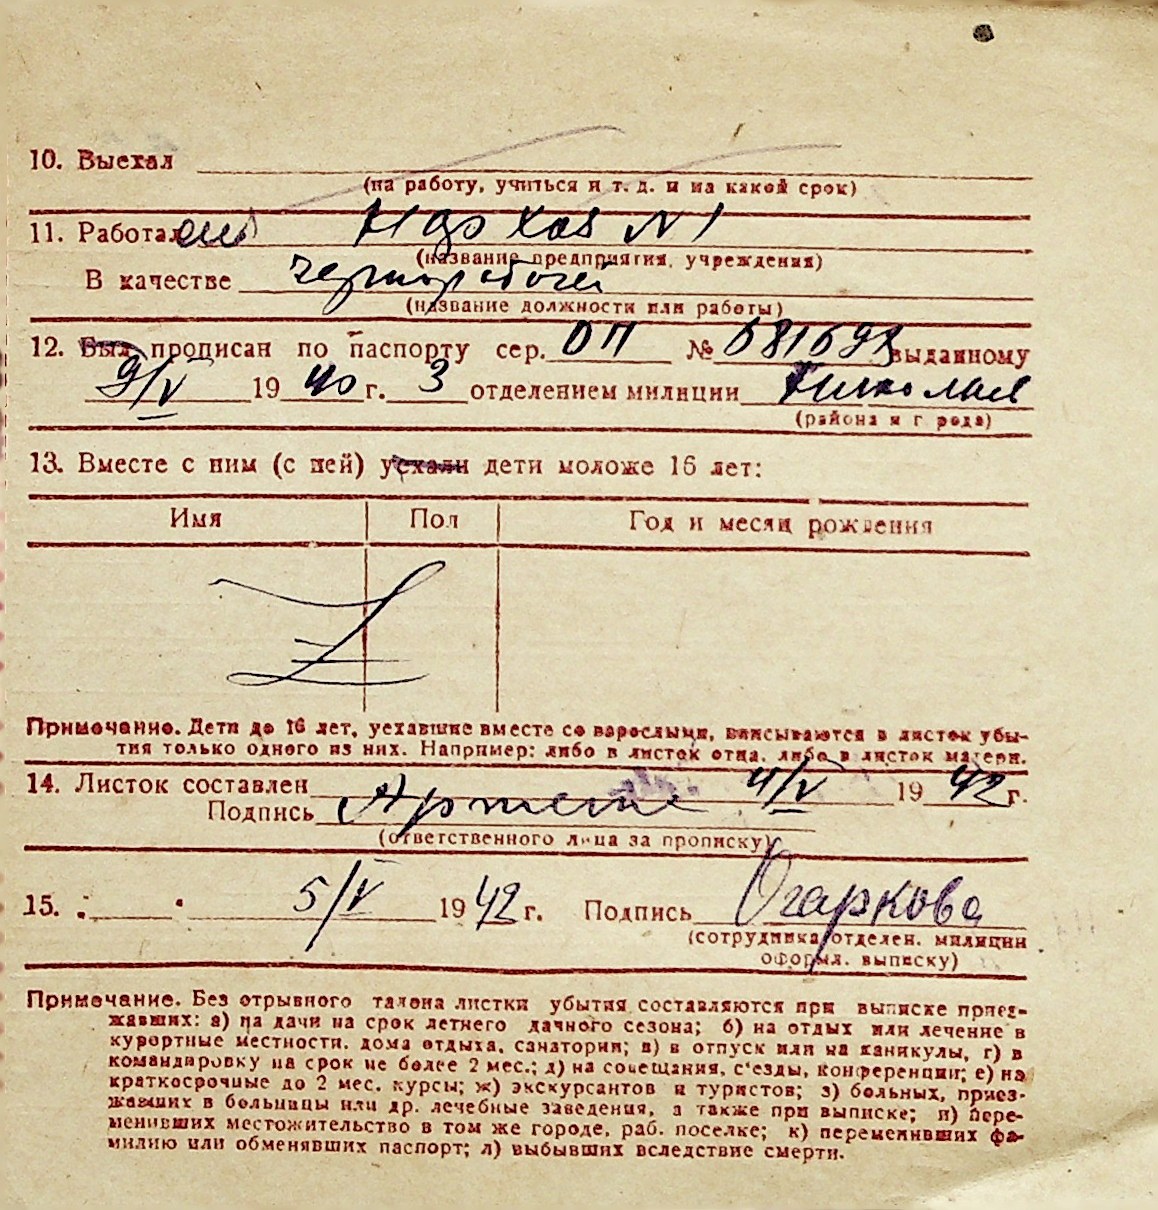 10. Выехал
(на работу, учиться и т. д. и на какой срок)
11. Работал
(название предприятия, учреждения)
В качестве чернорабочей
(название должности или работы)
12. Был прописан по паспорту сер. ОП № выданному
9/V 1940 г. 3 отделением милиции
(района и города)
13. Вместе с ним (с ней) уехали дети моложе 16 лет:
Имя Пол Год и месяц рождения
Примечание. Дети до 16 лет, уехавшие вместе со взрослыми, вписываются в листок убы-
тия только одного из них. Например: либо в листок отца, либо в листок матери.
14. Листок составлен 4/V 1942 г.
Подпись
(ответственного лица за прописку)
15. 5/V 1942 г. Подпись Огаркова
(сотрудника отделен. милиции
оформл. выписку)
Примечание. Без отрывного талона листки убытия составляются при выписке приез-
жавших: а) на дачи на срок летнего дачного сезона; б) на отдых или лечение в
курортные местности, дома отдыха, санатории; в) в отпуск или на каникулы, г) в
командировку на срок не более 2 мес.; д) на совещания, с'езды, конференции; е) на
краткосрочные до 2 мес. курсы; ж) экскурсантов и туристов; з) больных, приез-
жавших в больницы или др. лечебные заведения, а также при выписке; и) пере-
менивших местожительство в том же городе, раб. поселке; к) переменивших фа-
милию или обменявших паспорт; л) выбывших вследствие смерти.